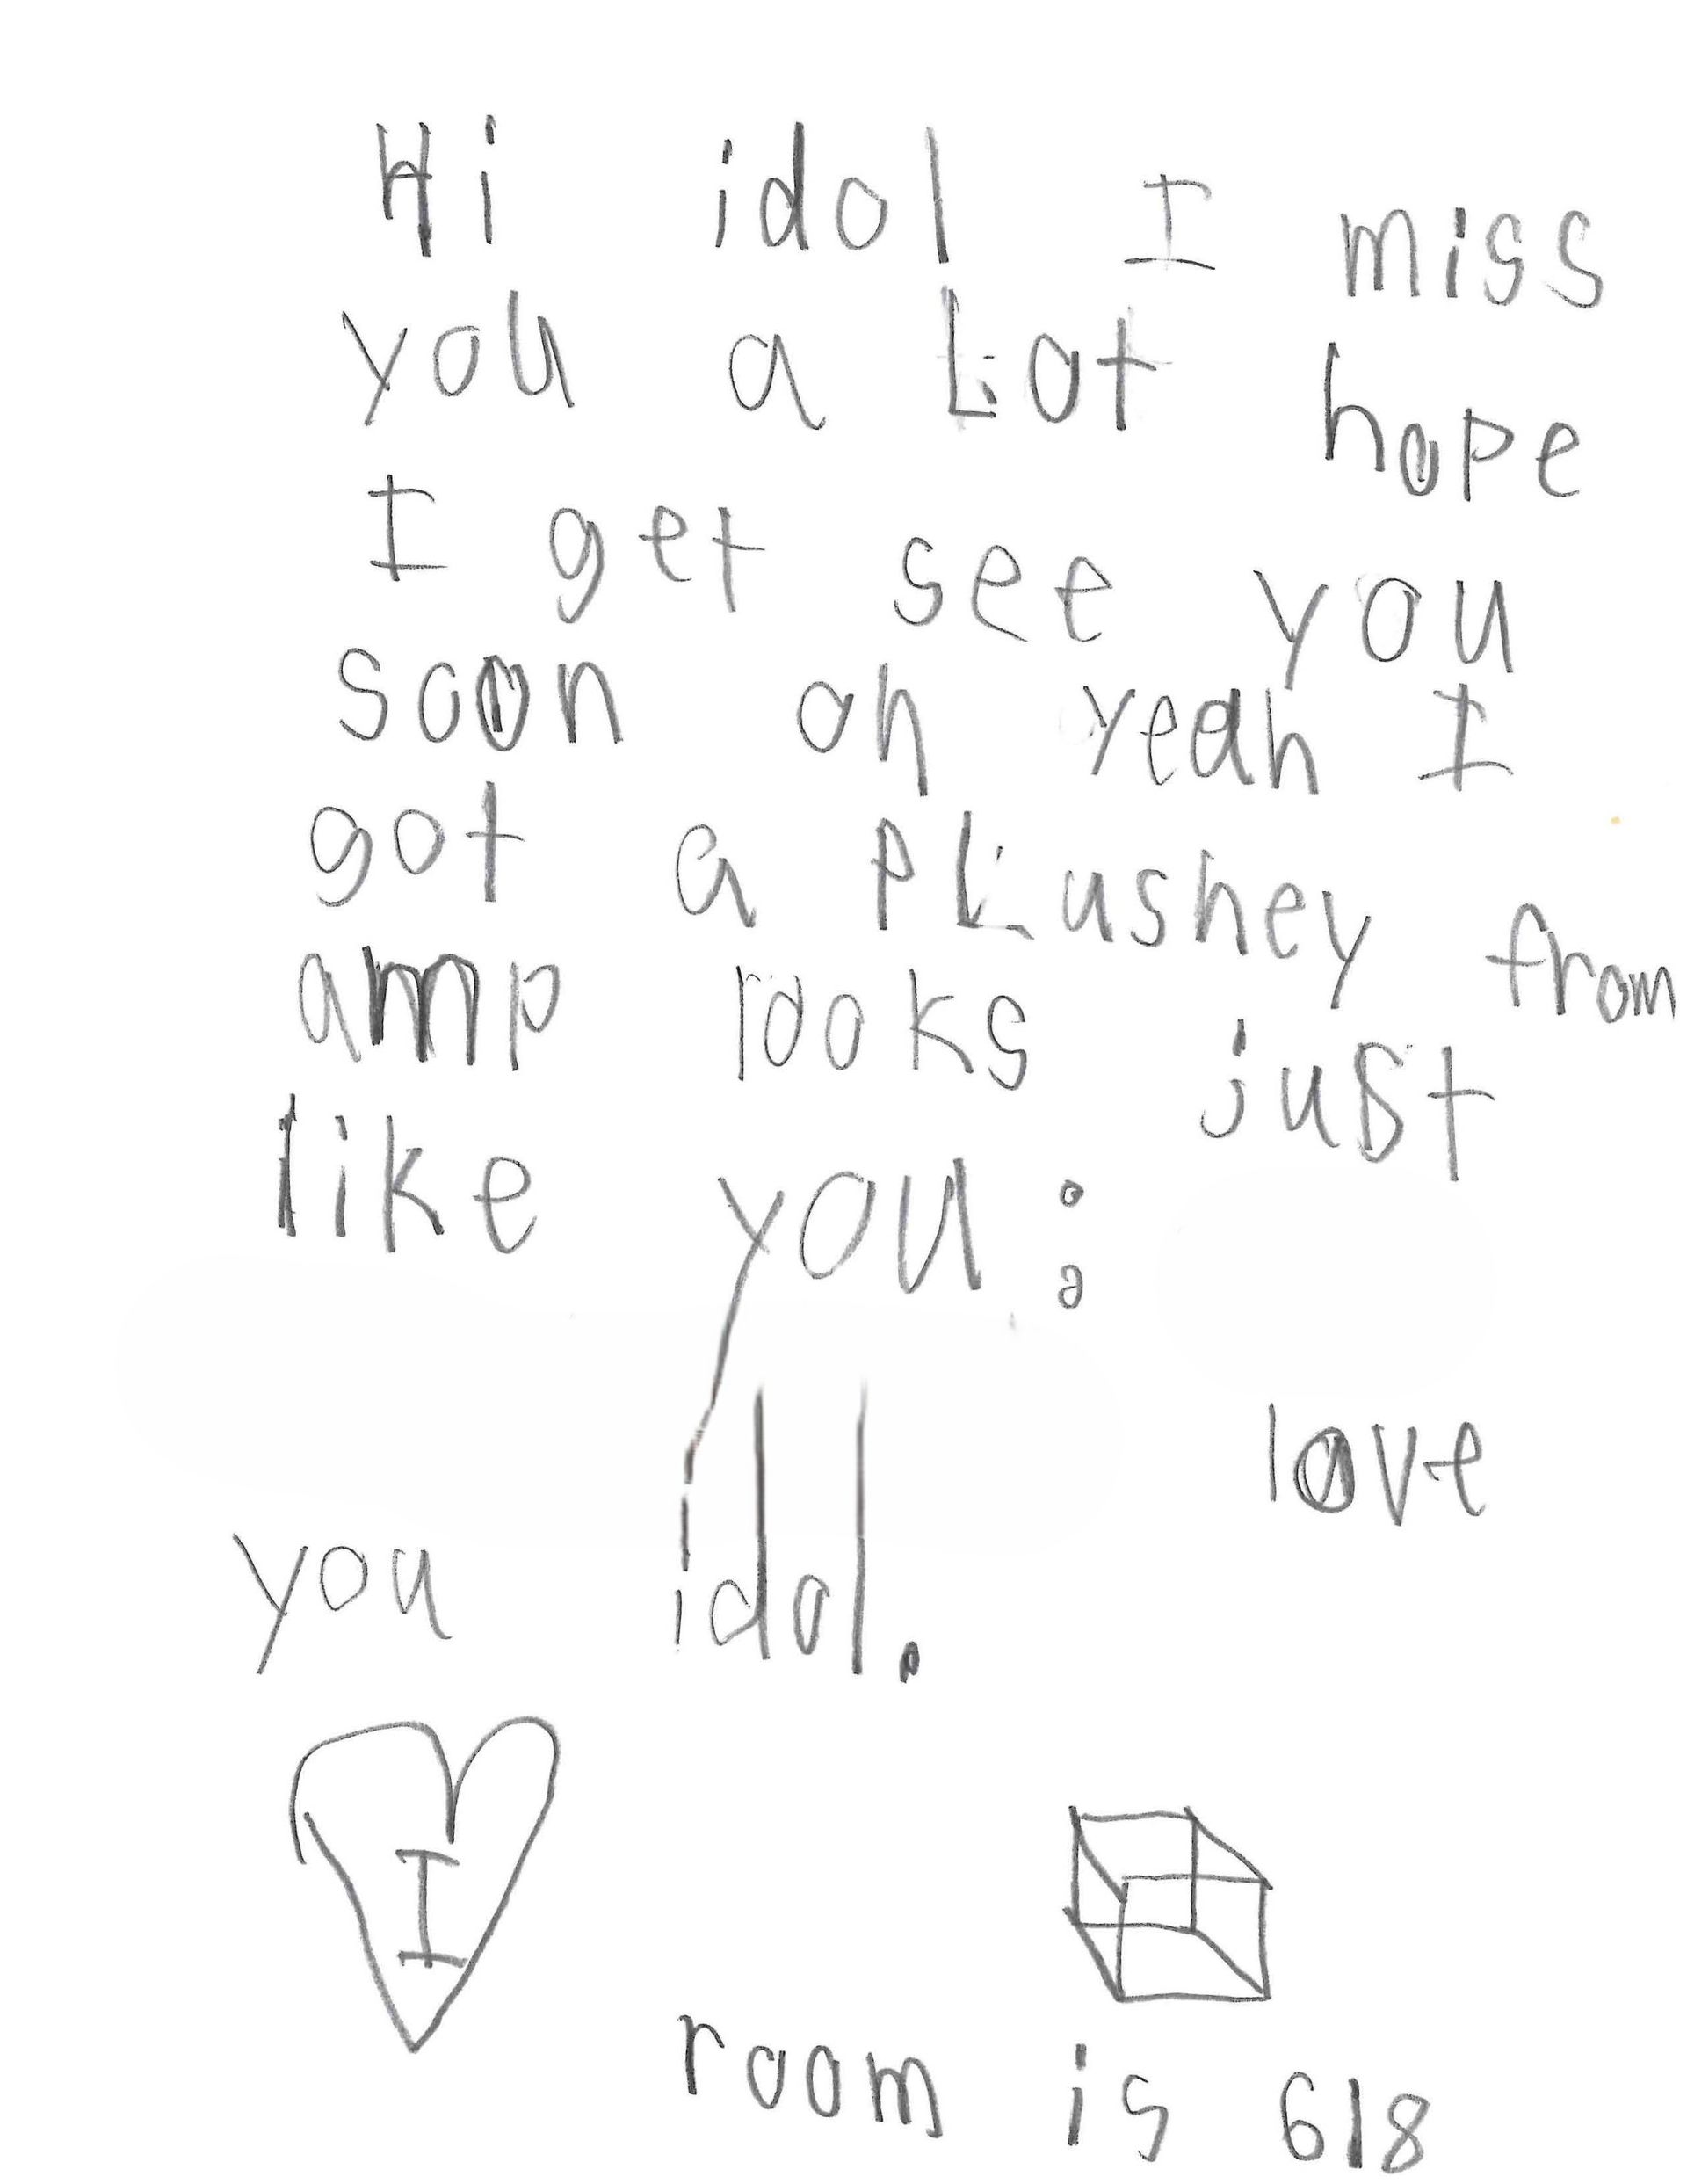 Hi idol I miss
you a Lot hope
I get see you
soon oh yeah I
got a PLushey from
amp looks just
like you:
love
you idol.
I
room is 618